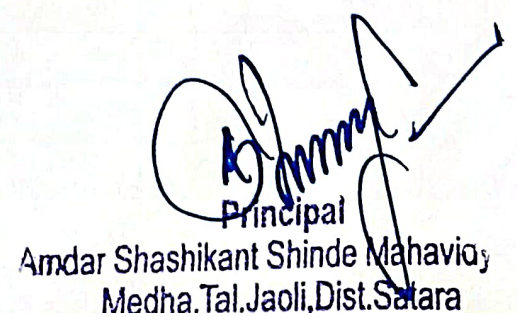 Principal
Amdar Shashikant Shinde Mahaviday
Medha.Tal.Jaoli,Dist.Satara